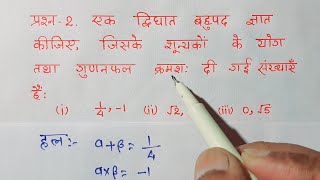 प्रश्न-2. एक द्विघात बहुपद ज्ञात
कीजिए, जिसके शून्यकों के योग
तथा गुणनफल क्रमशः दी गई संख्याएँ
हैं:
(i) 1/4, -1 (ii) √2, (iii) 0, √5
हल:- α+β = 1/4
α×β = -1